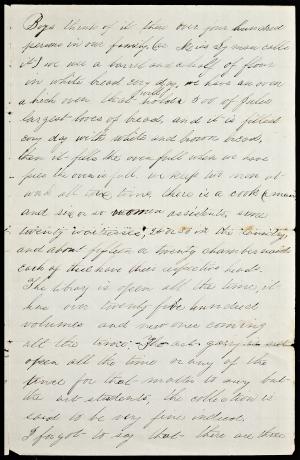 Boys think of it there over four hundred
persons in our family (as Miss Lyman calls
it) we use a barrel and a half of flour
in white bread every day, we have an oven
a brick oven that will holds 300 of Jules
largest loves of bread, and it is filled
every day with white and brown bread,
then it fills the oven full when we have
pies the oven is full. we keep two men at
work all the time, there is a cook (a man)
and six or so women assistants, some
twenty waitresses, 20 or in the laundry,
and about fifteen or twenty chambermaids
each of these have their respective heads.
The library is open all the time, it
has over twenty five hundred
volumes and new ones coming
all the time. The art gary is not
open all the time or any of the
time for that matter to any but
the art students, the collection is
said to be very fine indeed.
I forgot to say that there are three